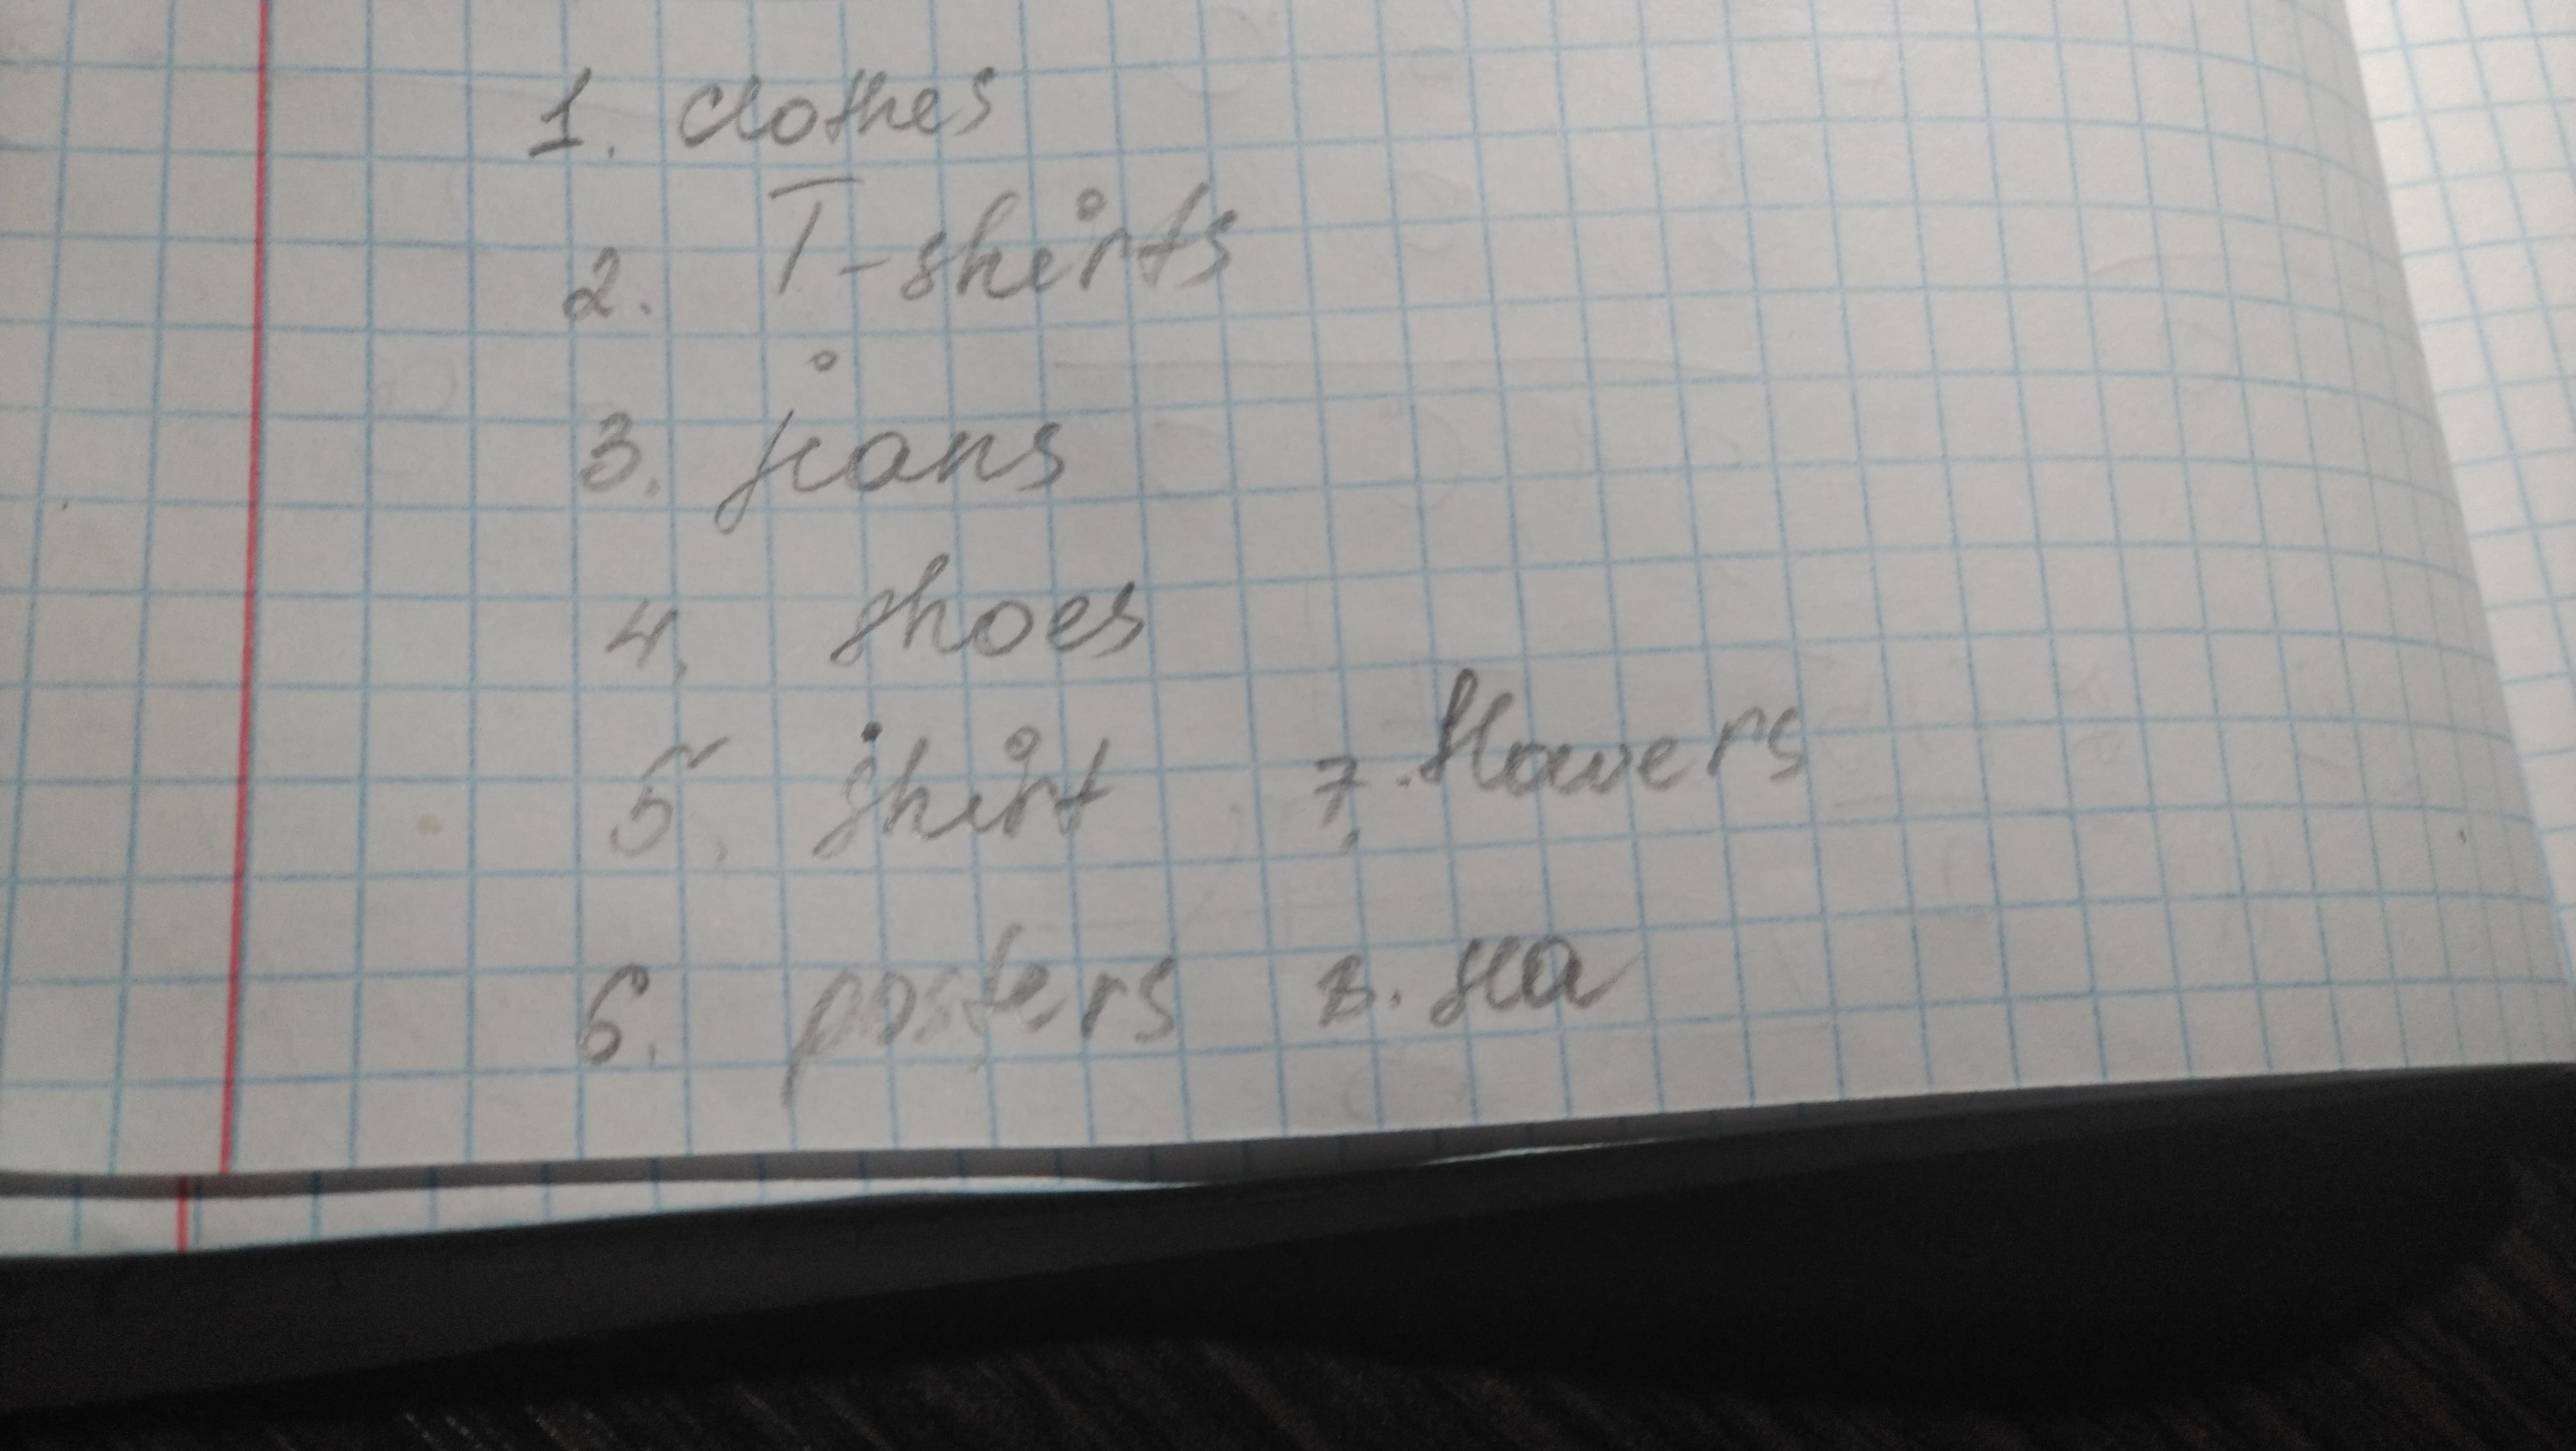 1. clothes
2. T-shirts
3. jeans
4. shoes
5. shirt
7. flowers
6. posters
8. sea